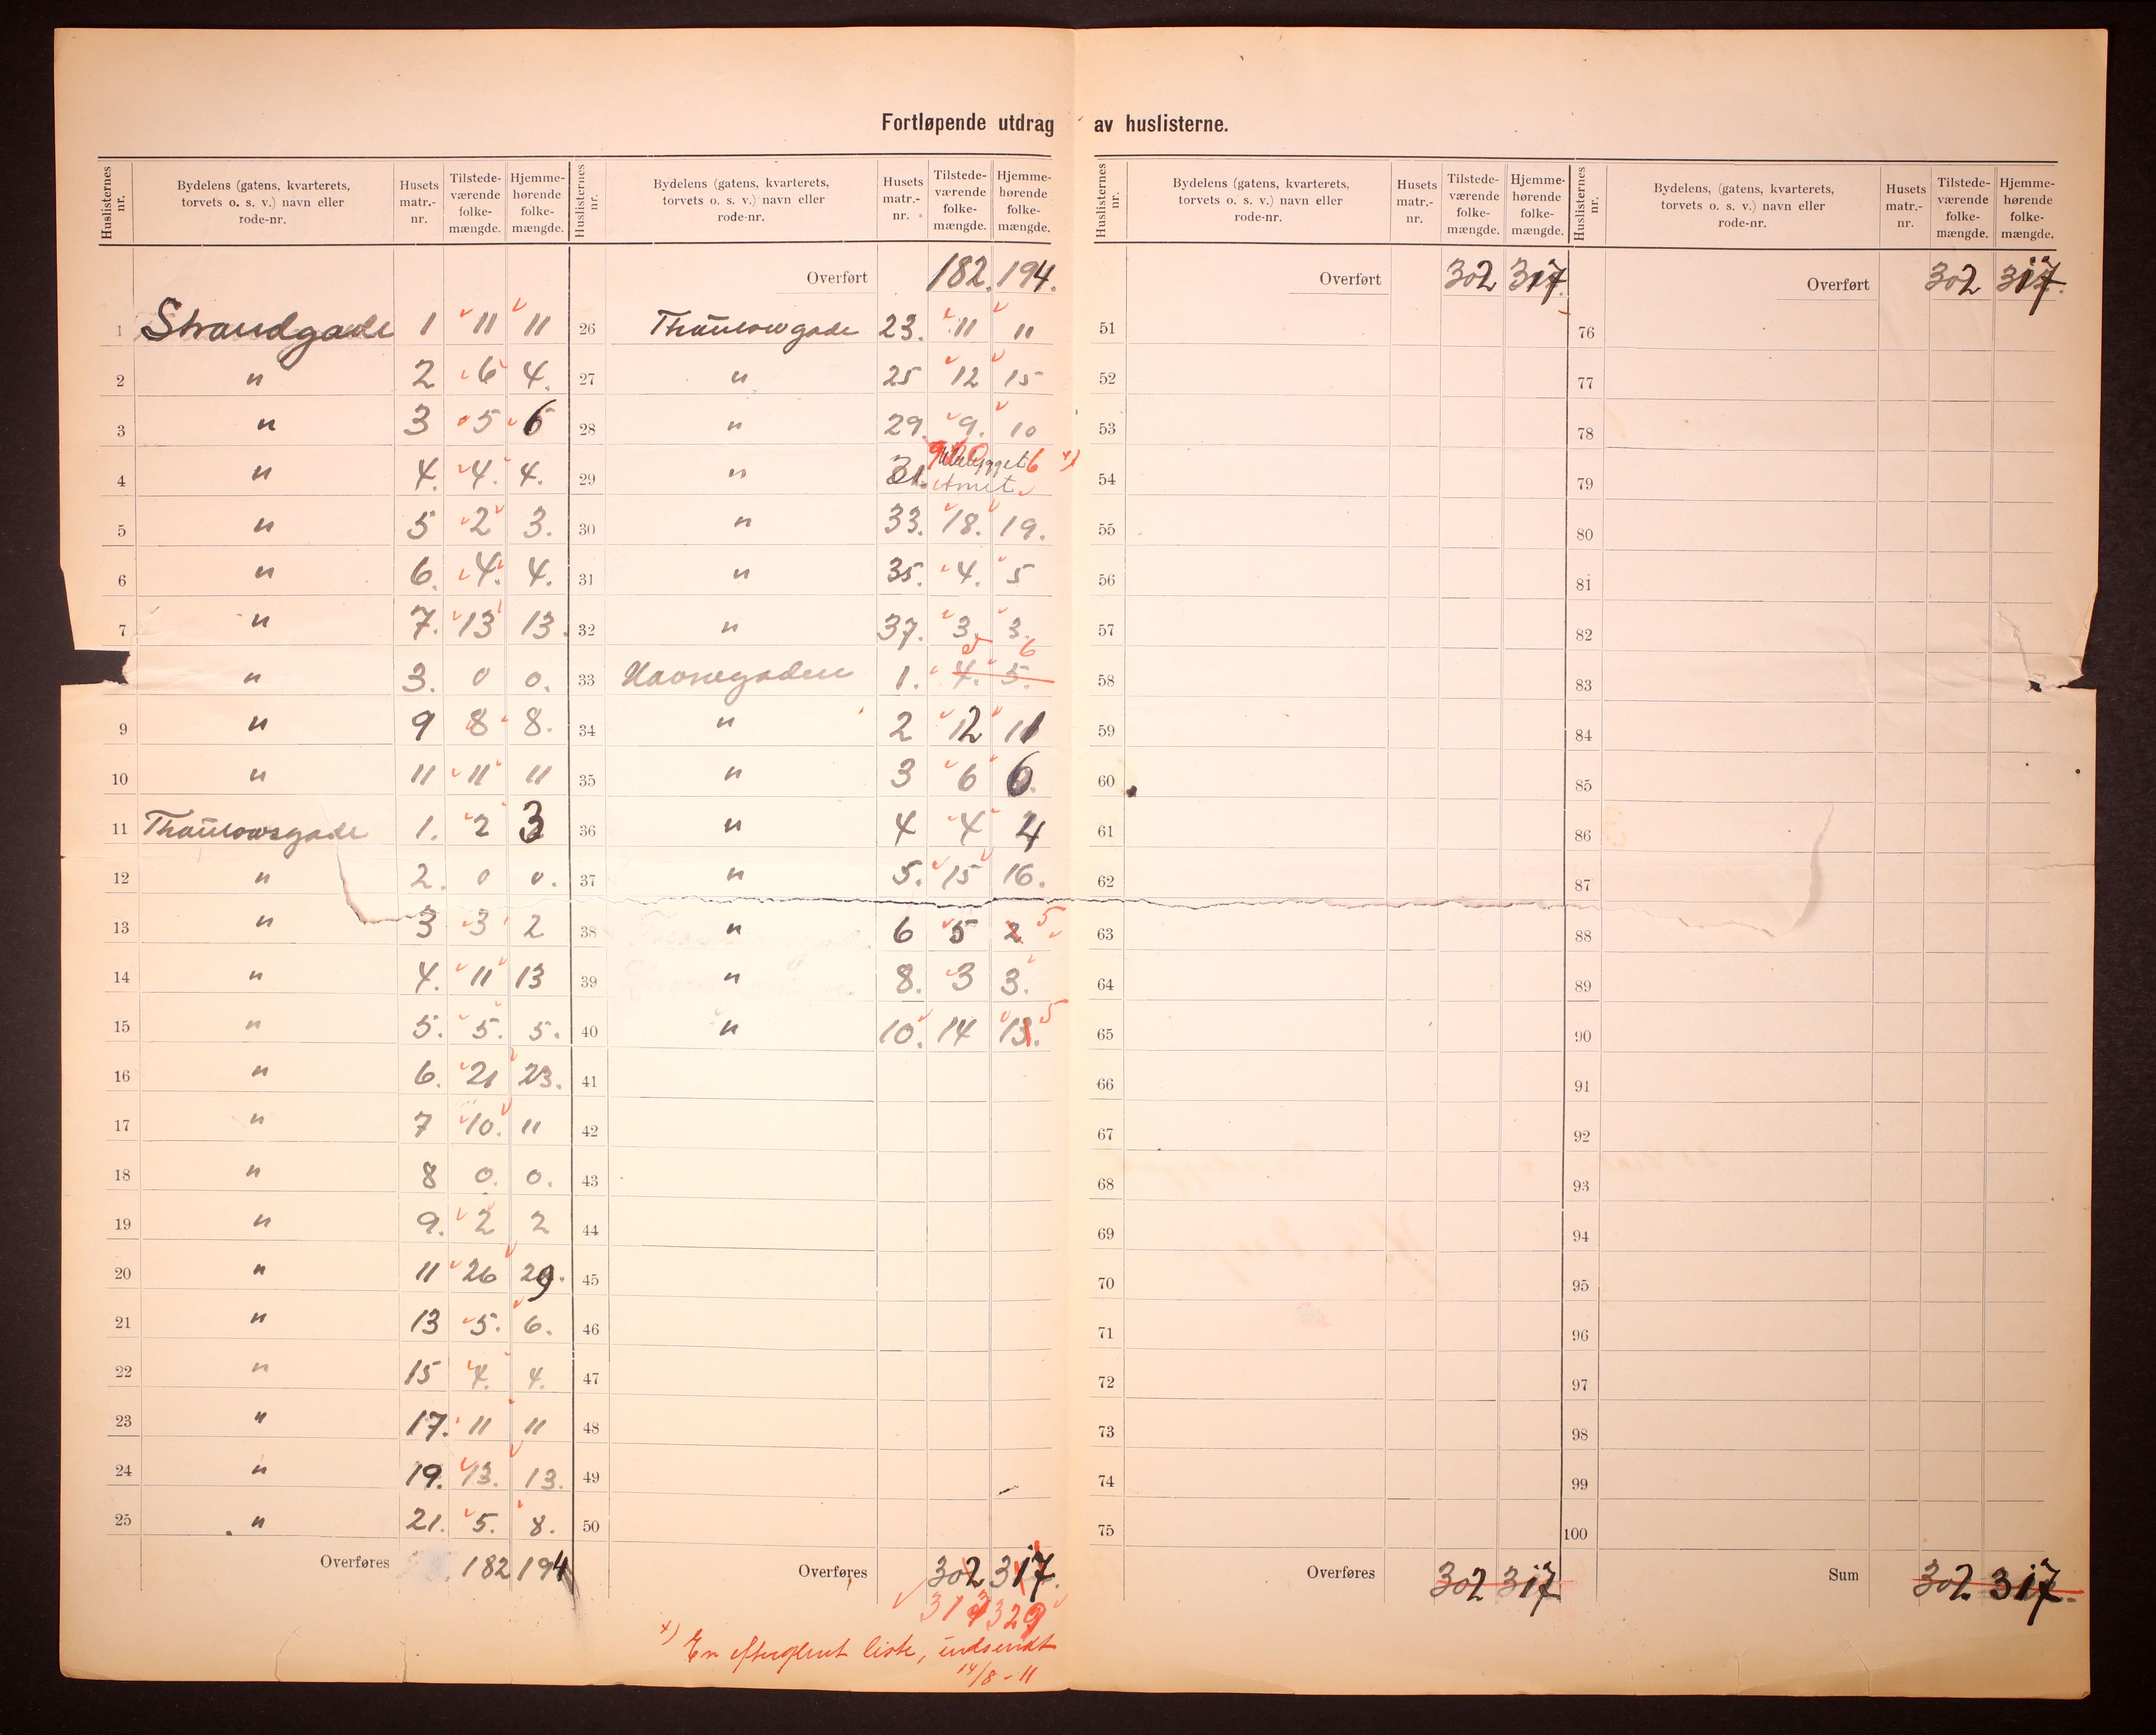 Fortløpende utdrag av huslisterne.
Huslisternes nr. Bydelens (gatens, kvarterets, torvets o. s. v.) navn eller rode-nr. Husets matr.-nr. Tilstede-værende folke-mængde. Hjemme-hørende folke-mængde.
1 Strandgade 1 11 11
2 " 2 6 4.
3 " 3 5 6
4 " 4. 4. 4.
5 " 5 2 3.
6 " 6. 4. 4.
7 " 7. 13 13.
" 3. 0 0.
9 " 9 8 8.
10 " 11 11 11
11 Thaulowsgade 1. 2 3
12 " 2. 0 0.
13 " 3 3 2
14 " 4. 11 13
15 " 5. 5. 5.
16 " 6. 21 23.
17 " 7 10. 11
18 " 8 0. 0.
19 " 9. 2 2
20 " 11 26 29.
21 " 13 5. 6.
22 " 15 4. 4.
23 " 17. 11 11
24 " 19. 13. 13.
25 " 21. 5. 8.
Overføres 182 194
Huslisternes nr. Bydelens (gatens, kvarterets, torvets o. s. v.) navn eller rode-nr. Husets matr.-nr. Tilstede-værende folke-mængde. Hjemme-hørende folke-mængde.
Overført 182. 194.
26 Thaulowgade 23. 11 11
27 " 25 12 15
28 " 29. 9. 10
29 " 31. 6 x)
30 " 33. 18. 19.
31 " 35. 4. 5
32 " 37. 3. 3.
33 Havnegaden 1. 4. 5. 6
34 " 2 12 11
35 " 3 6 6.
36 " 4 4 4
37 " 5. 15 16.
38 " 6 5 2 5
39 " 8. 3 3.
40 " 10. 14 13. 5
41
42
43
44
45
46
47
48
49
50
Overføres 302 317.
329
x) En efterglemt liste, indsendt
14/8 - 11
Huslisternes nr. Bydelens (gatens, kvarterets, torvets o. s. v.) navn eller rode-nr. Husets matr.-nr. Tilstede-værende folke-mængde. Hjemme-hørende folke-mængde.
Overført 302 317.
51
52
53
54
55
56
57
58
59
60
61
62
63
64
65
66
67
68
69
70
71
72
73
74
75
Overføres 302 317
Huslisternes nr. Bydelens, (gatens, kvarterets, torvets o. s. v.) navn eller rode-nr. Husets matr.-nr. Tilstede-værende folke-mængde. Hjemme-hørende folke-mængde.
Overført 302 317.
76
77
78
79
80
81
82
83
84
85
86
87
88
89
90
91
92
93
94
95
96
97
98
99
100
Sum 302 317.